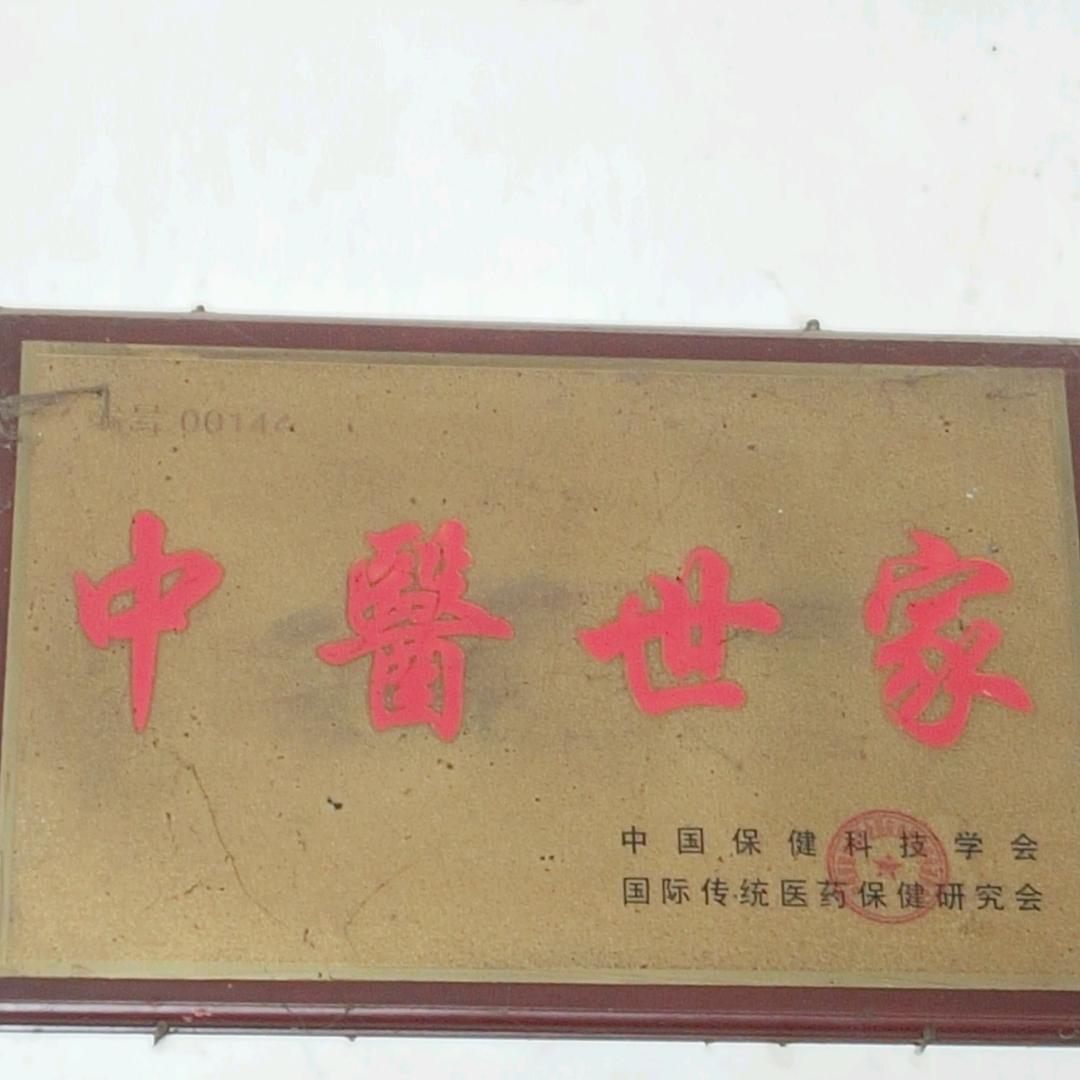 编号 00144
中醫世家
中国保健科技学会
国际传统医药保健研究会